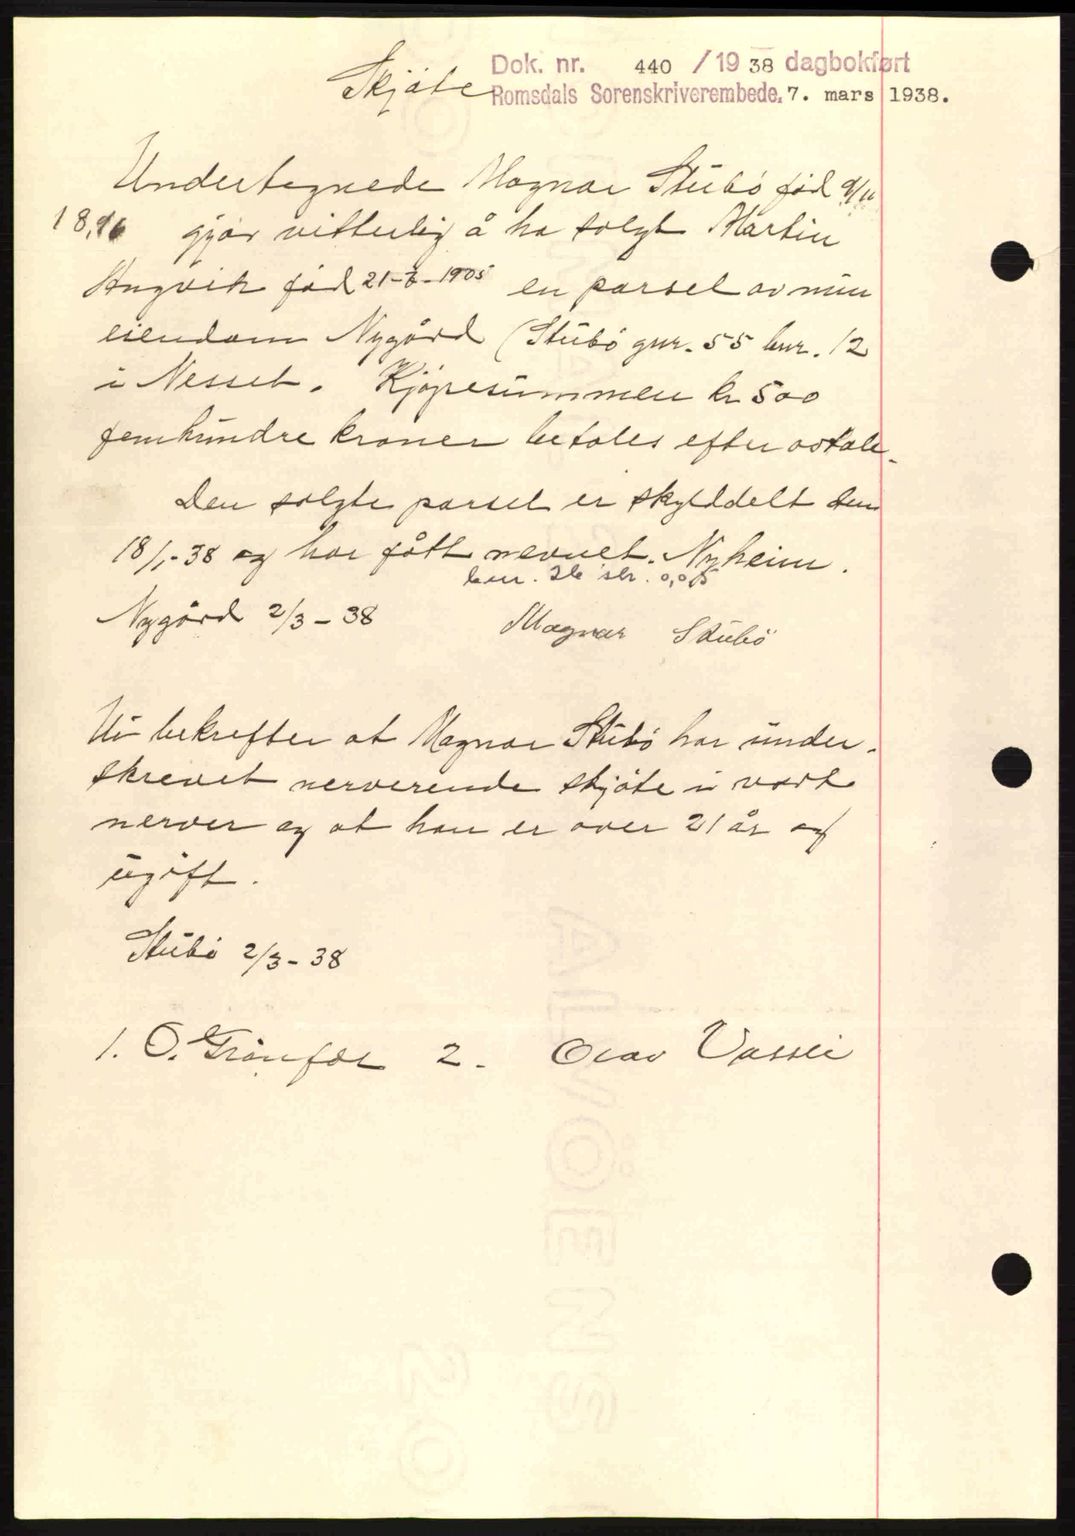 Skjøte
Dok. nr. 440 / 19 38 dagbokført
Romsdals Sorenskriverembede. 7. mars 1938.
Undertegnede Magnar Stubø född 9/11
18.96 gjør vitterlig å ha solgt Martin
Angvik född 21-6-1905 en parsel av min
eiendom Nygård (Stubø gnr. 55 bnr. 12
i Nesset. Kjøpesummen kr 500
femhundre kroner betales efter avtale.
Den solgte parsel er skylddelt den
18/1-38 og har fått navnet. Nyheim.
bnr. 26 skr. 0,05
Nygård 2/3-38 Magnar Stubø
Vi bekrefter at Magnar Stubø har under-
skrevet nerverende skjøte i vort
nerver og at han er over 21 år og
ugift.
Stubø 2/3-38
1. O. 2. Olav Vassli
ALVØENS
20